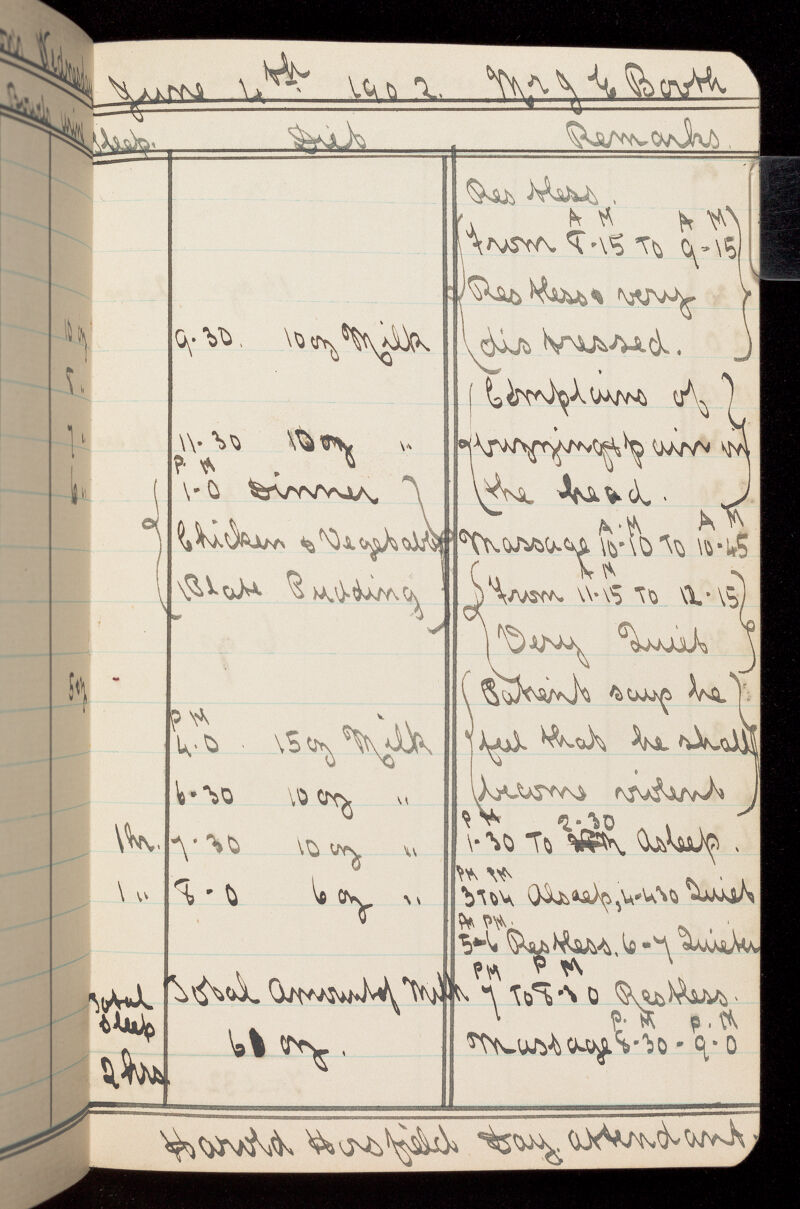 Wednesday
June 4th 1902. Mr J E Booth
Sleep. Diet Remarks.
Restless.
A M A M
From 8-15 To 9-15
Restless & very
10 oz
9-30. 10 oz Milk distressed.
8 "
Complains of
7 "
11-30 10 oz " buzzing & pain in
P M
6 " 1-0 Dinner the head.
A M A M
Chicken & Vegetables Massage 10-10 To 10-45
A M
Plate Pudding From 11-15 To 12-15
Very Quiet
5 oz Patient says he
P M
4.0. 15 oz Milk feel that he shall
6-30 10 oz " become violent
P M 2-30
1hr. 7-30 10 oz " 1-30 To Asleep.
PM PM
1 " 8-0 6 oz " 3 To 4 Alseep, 4-430 Quiet
PM PM.
5-6 Restless. 6-7 Quieter
PM P M
Total Sleep Total Amount of Milk 7 To 8-30 Restless.
P. M P. M
2 hrs 61 oz. Massage 8-30-9-0
Harold Horsfield Day attendant.